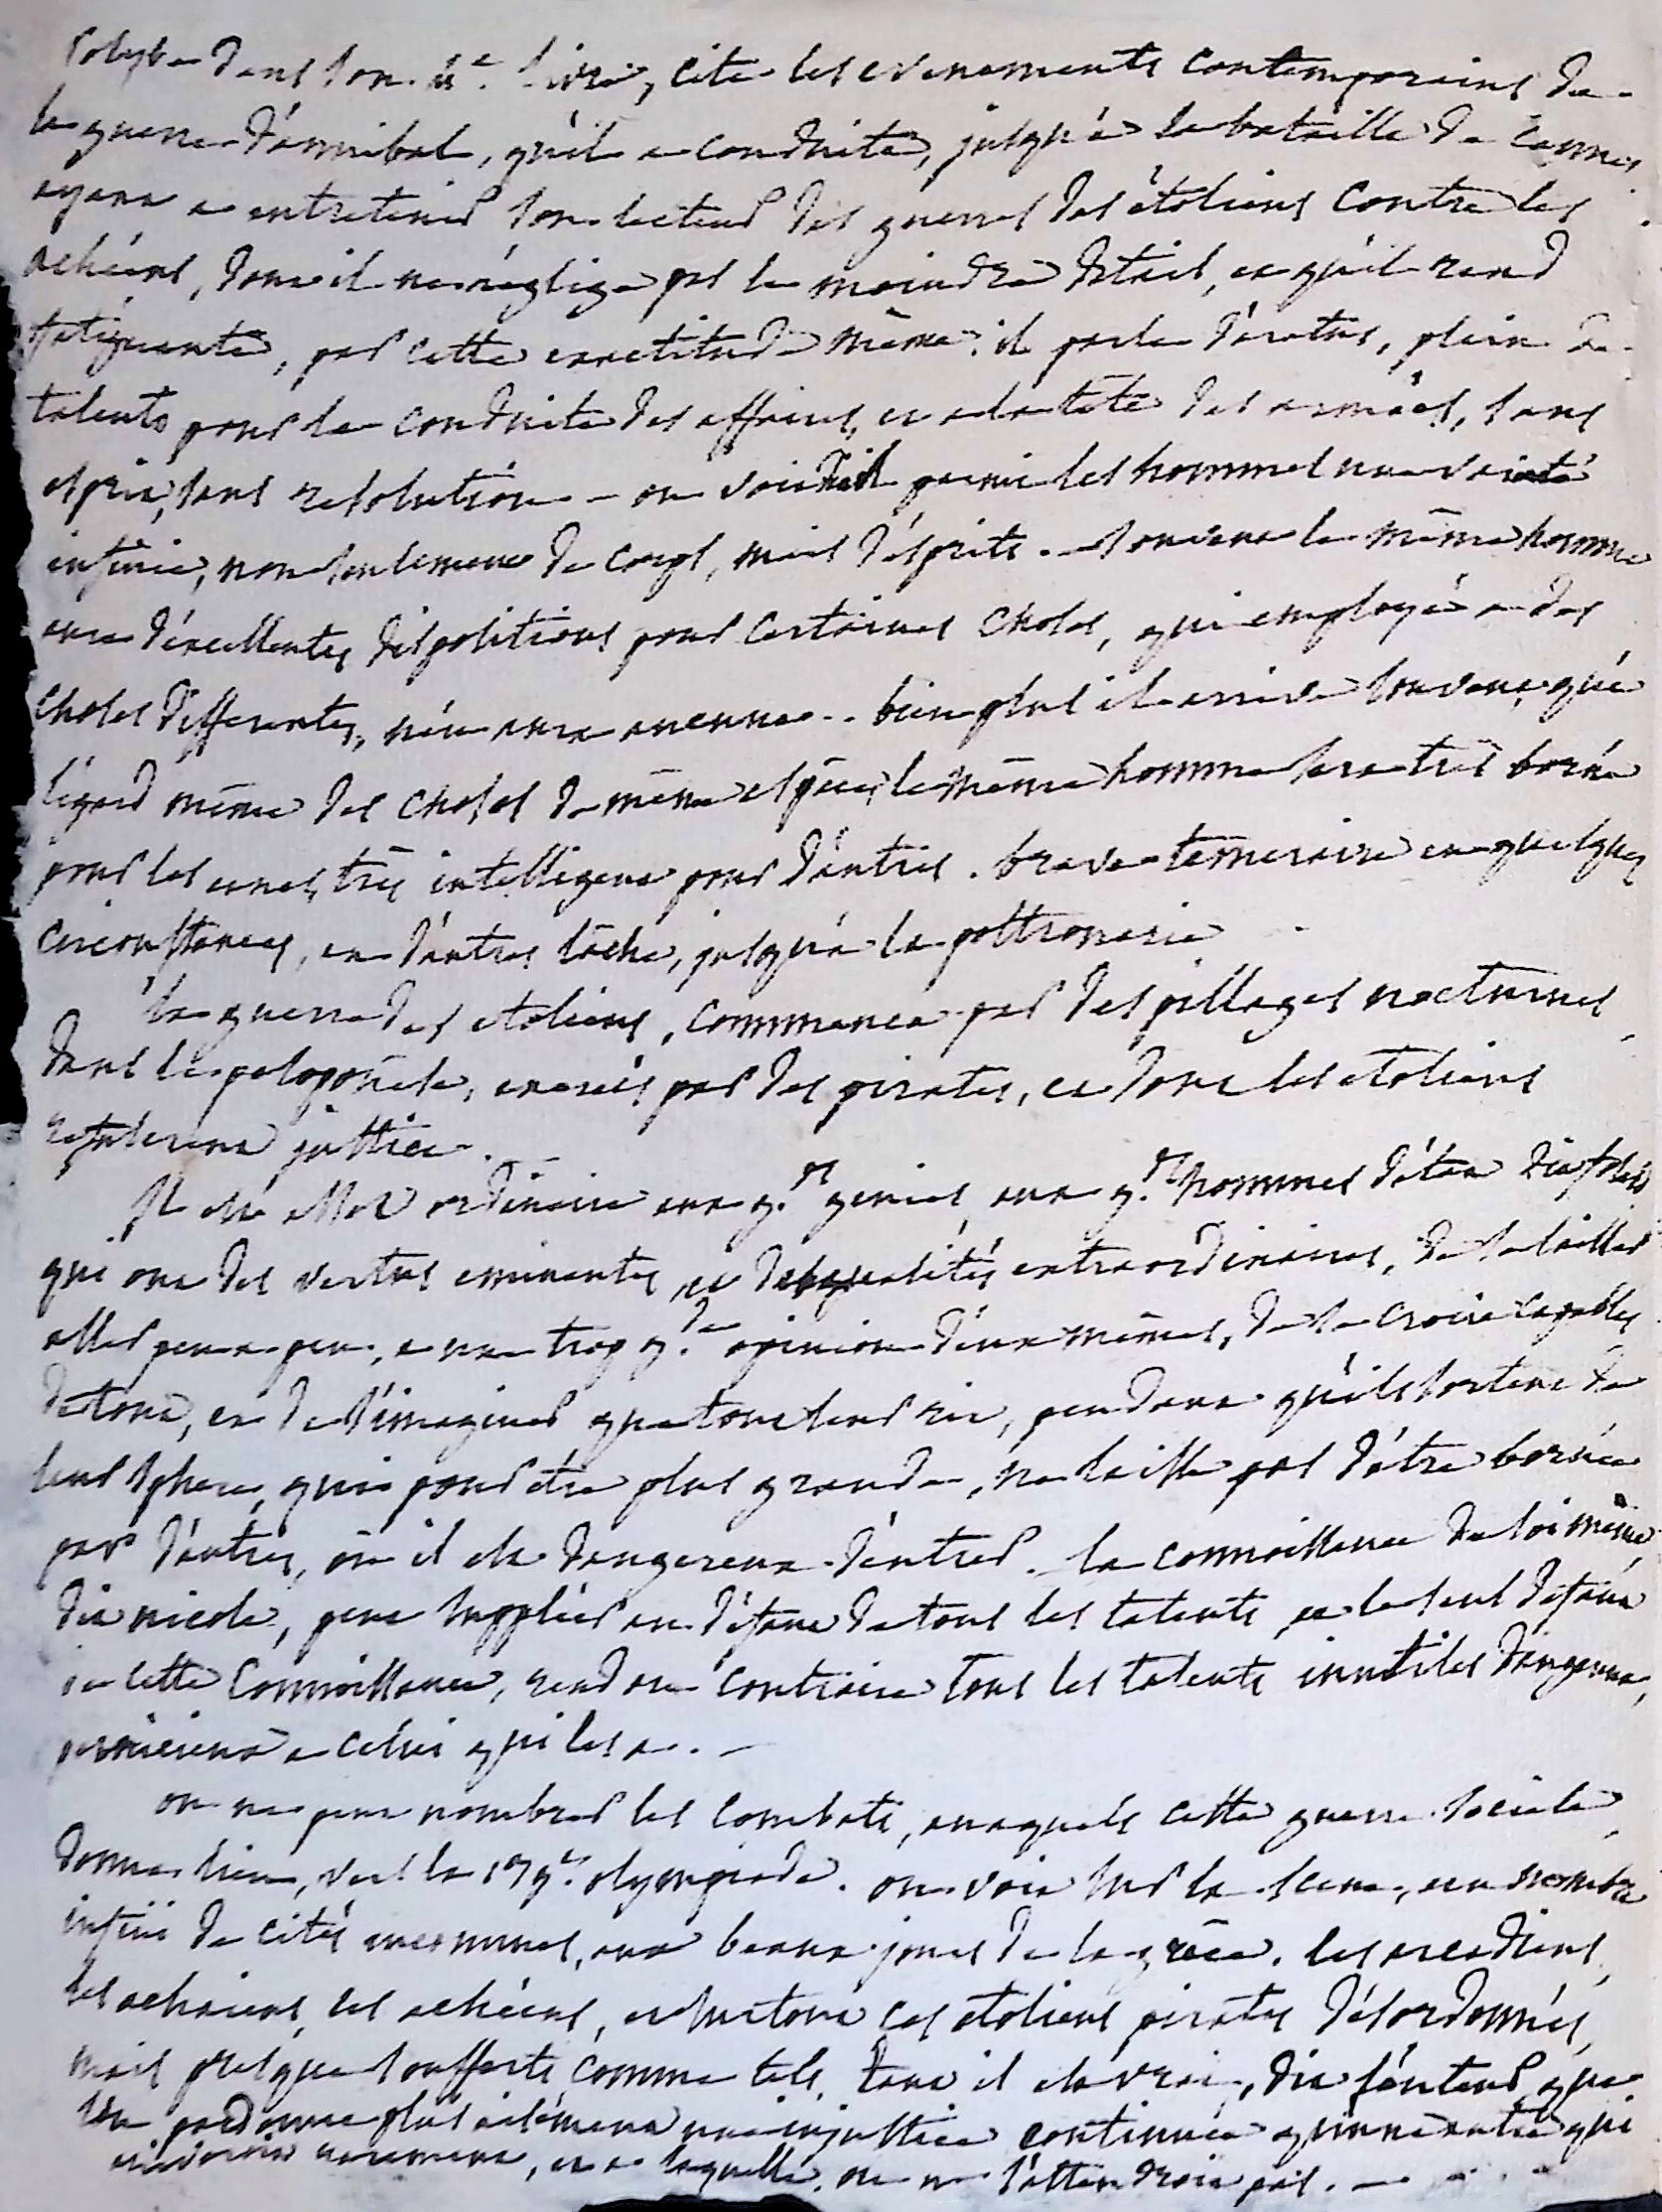 Polybe dans son 4e. livre, cite les evenements contemporains de
la guerre d'annibal, qu'il a conduite, jusqu'à la bataille de cannes
ayant a entretenir son lecteur des guerres des étoliens contre les
achéens, dont il ne néglige pas le moindre détail, et qu'il rend
fatiguante, par cette exactitude même. il parle d'aratus, plein de
talents pour la conduite des affaires, et a la tête des armées, sans
esprit, sans resolution - on voit parmi les hommes une varieté
infinie, non seulement de corps, mais d'esprits. - souvent le même homme
aura d'excellentes dispositions pour certaines choses, qui employé a des
choses differentes, n'en aura aucune.. bien plus il arrive souvent, qu'a
l'égard même des choses de même espèce, le même homme sera très borné
pour les unes, très intelligent pour d'autres. brave temeraire en quelques
circonstances, en d'autres lâche, jusqu'a la poltronerie
la guerre des etoliens, commença par des pillages nocturnes
dans le peloponèse, exercés par des pirates, et dont les etoliens
refuserent justice.
Il est assez ordinaire aux g.ds genies, aux g.ds hommes d'état dit folard
qui ont des vertus eminentes, et des qualités extraordinaires, de se laisser
aller peu a peu, a une trop g.de opinion d'eux mêmes, de se croire capables
de tout, et de s'imaginer que tout leur rit, pendant qu'ils sortent de
leur sphere, qui pour etre plus grande, ne laisse pas d'être bornée
par d'autres, où il est dangereux d'entrer. la connoissance de soi même
dit nicole, peut suppléer au défaut de tous les talents, et le seul défaut
de cette connoissance, rend au contraire tous les talents inutiles dangereux,
pernicieux a celui qui les a. -
on ne peut nombrer les combats, auxquels cette guerre sociale
donna lieu, vers la 139e. olympiade. on voit sur la scene, un nombre
infini de cités inconnues, aux beaux jours de la grèce. les arcadiens,
les achaiens, les achéens, et surtout ces etoliens pirates désordonnés,
mais presque soufferts comme tels. tant il est vrai, dit l'auteur, que
l'on pardonne plus aisément une injustice continuée, qu'une autre qui
rarement, et a laquelle, on ne s'attendroit pas. -